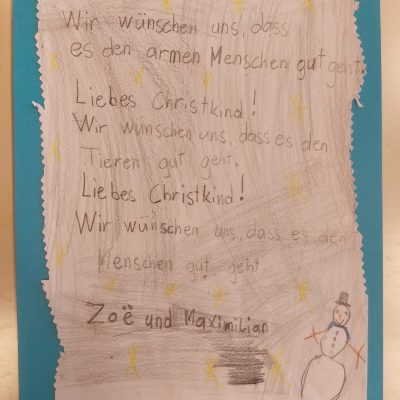 Wir wünschen uns, dass
es den armen Menschen gut geht
Liebes Christkind!
Wir wünschen uns, dass es den
Tieren gut geht.
Liebes Christkind!
Wir wünschen uns, dass es den
Menschen gut geht.
Zoë und Maximilian